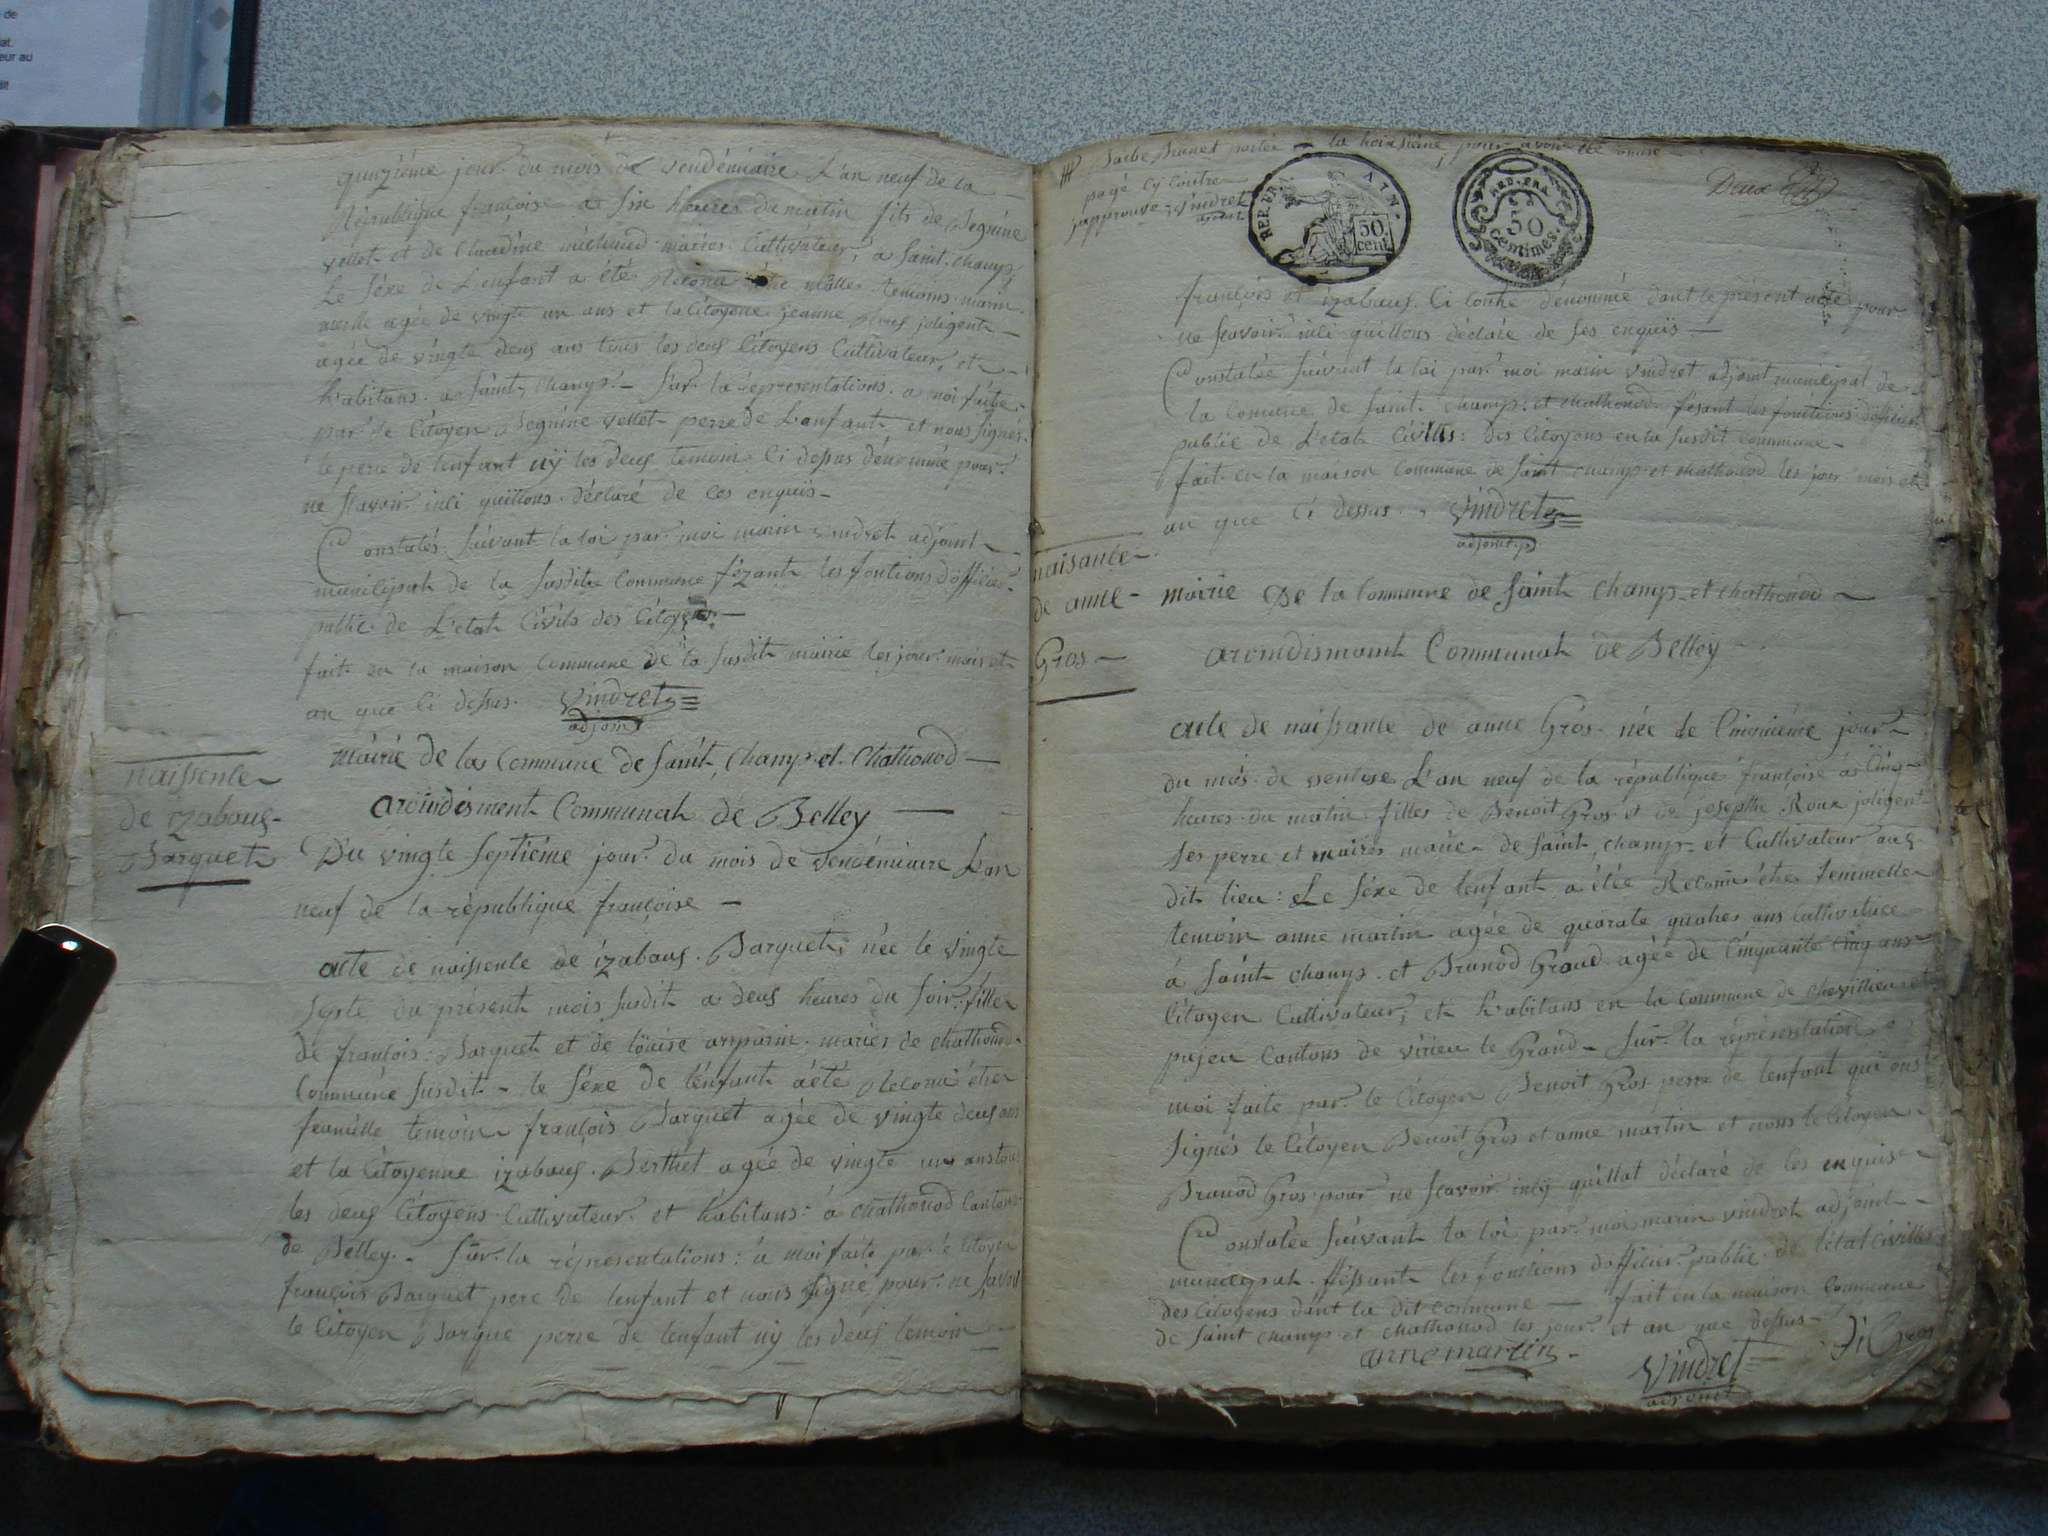 quinziéme jour du mois de vendémiaire L'an neuf de la
République francoise a six heures du matin fils de
vellet et de Claudine michaud mariés Cultivateur, a saint champ,
Le séxe de L'enfant a été Reconu temoins marin
agée de vingte un ans et la Citoyene jeanne
agée de vingte deus ans tous les deus Citoyens Cultivateur, et
habitans a saint champ - sur la representations a moi faite
par le Citoyen vellet perre de L'enfant et nous signés
le perre de lenfant nÿ les deus temoin Ci dessus dénommé pour
ne scavoir inli quillons déclaré de ces enquis -
Constatés suivant la loi par moi marin vindret adjoint
municipal de la susdite Commune fézant les fontions dofficier
public de L'etat Civils des Citoyens -
fait en la maison Commune de la susdit mairie les jour mois et
an que Ci dessus. Vindret
adjoint
mairie de la Commune de saint, champ et Chathonod -
aroindisment Communal de Belley
naissence
de izabaus
Barquet
Du vingte septiéme jour du mois de vendémiaire L'an
neuf de la république françoise -
acte de naissence de izabaus Barquet, née le vingte
septe du présent mois susdit a deus heures du soir fille
de françois Barquet et de loüise mariés de chathonod
Commune susdit - le séxe de l'enfant a été Reconu étre
femelle temoin françois Barquet agée de vingte deus ans
et la Citoyenne izabaus Berthet agée de vingte un ans tous
les deus Citoyens Cultivateur et habitans a chathonod Cantons
de Belley - sur la réprésentations a moi faite par le Citoyen
françois Barquet pere de lenfant et nous signé pour ne savoir
le Citoyen Barque perre de lenfant nÿ les deus temoin
pagé cy contre
japprouve Vindret
adjoint
REP. FRA. 50 cent
50 centimes.
Deux
françois et izabaus Ci contre dénommé dant le présent acte pour
ne scavoir inli quillons déclaré de ses enquis -
Constatée suivant la loi par moi marin vindret adjoint municipal de
la Comune de saint champ et chathonod fésant les fonctions dofficier
public de L'etat Civills des Citoyens en la susdit commune -
fait en la maison Commune de saint champ et chathonod les jour mois et
an que Ci dessus. Vindret
adjoint
naisance
de anne
Gros
mairie De la Commune de saint champ et chathonod
aroindismant Communal de Belley
acte de naissance de anne Gros née le Cinquiéme jour
du mois de ventose L'an neuf de la république françoise a Cinq
heures du matin filles de Benoit Gros et de josephe Roux
ses perre et maires de saint champ et Cultivateur aus
dit lieu : Le séxe de lenfant a étée Reconu étre femmelle
temoin anne martin agée de quarate quatre ans Cultivatuce
á saint champ et agée de Cinquante Cinq ans
Citoyen Cultivateur, et habitans en la Commune de
pujeu Cantons de virieu le Grand - sur la réprésentation a
moi faite par le Citoyen Benoit Gros perre de lenfant qui ons
signés le Citoyen Benoit Gros et anne martin et nous le Citoyen
Gros pour ne scavoir quillat déclaré de ces enquise
Constatée suivant la loi par moi marin vindret adjoint
municipal féssant les fonctions dofficier public de letat Civilles
des Citoyens dant la dit commune - fait en la maison Commune
de saint champ et chathonod les jour et an que dessus -
anne martin
Vindret
adjoint
Gros